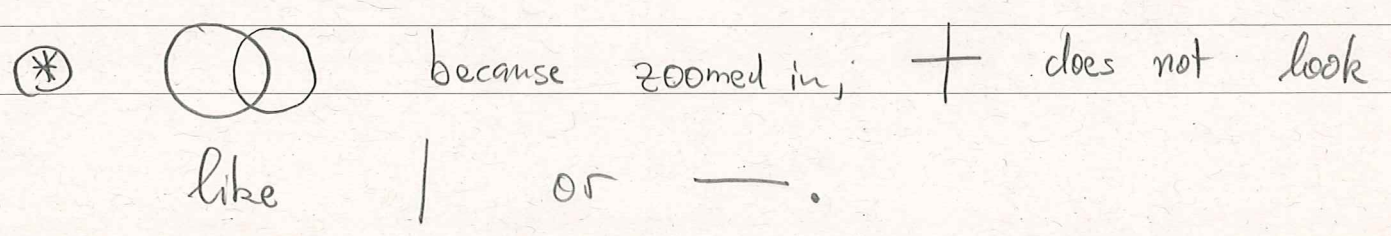 ⊛ because zoomed in, + does not look
like | or —.